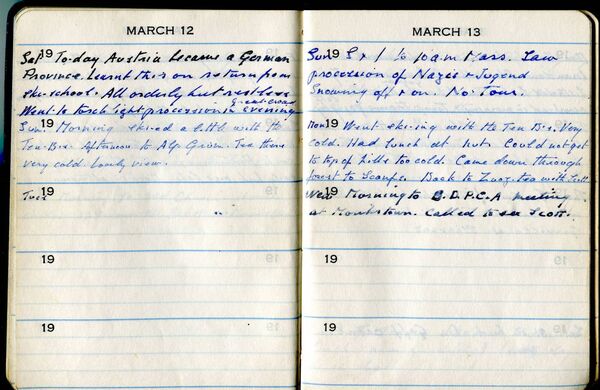 MARCH 12
19
Sat To-day Austria became a German
Province. Learnt this on return from
ski-school. All orderly but restless
Great crowd
Went to torch light procession in evening
19
Sun Morning ski-ed a little with the
Ten-Bs. Afternoon to Alp Grüm. Tea there
very cold. Lovely view.
19
Tues
19
19
MARCH 13
19
Sun S & I to 10 a.m. Mass. Saw
procession of Nazis & Jugend
Snowing off & on. No Tour.
19
Mon Went ski-ing with the Ten B-s. Very
cold. Had lunch at hut. Could not get
to top of hills too cold. Came down through
forest to Scanfs. Back to Zuoz. tea with Scott.
19
Wed Morning to B.D.P.C.A meeting
at Monkstown. Called to see Scott.
19
19